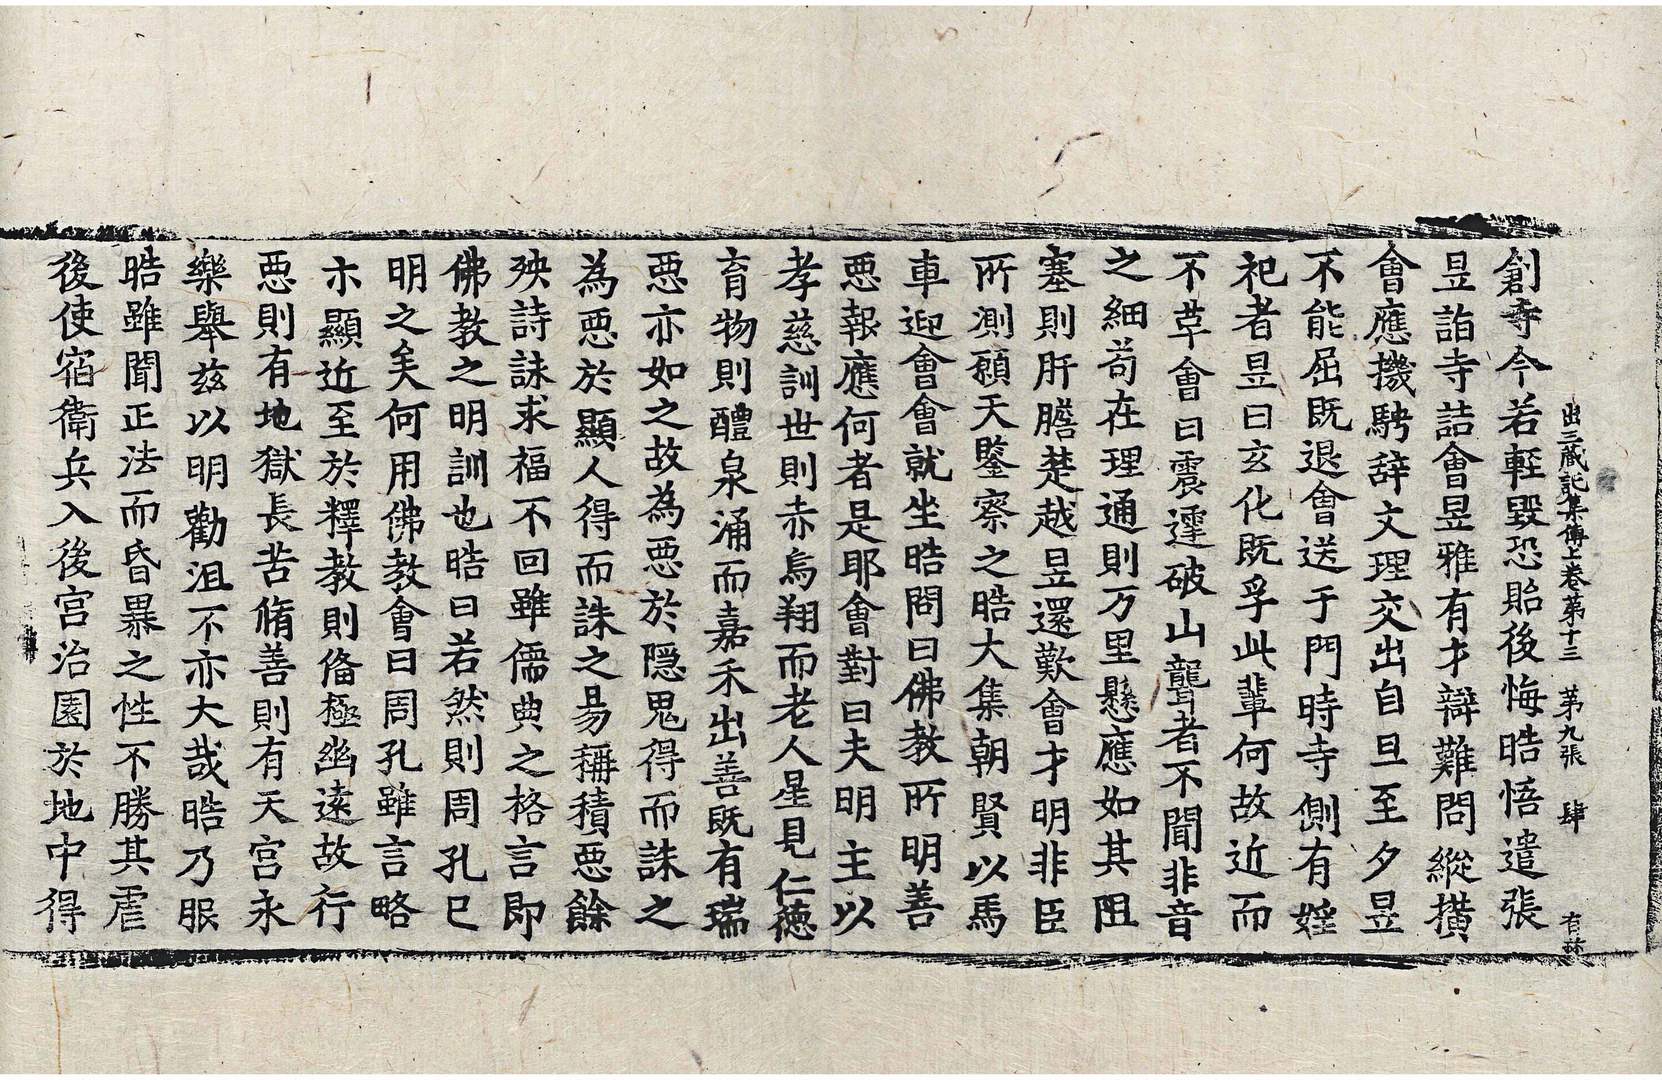 出三藏記集傳上卷第十三　第九張　肆　有
創寺今若輕毀恐貽後悔晧悟遣張
昱詣寺詰會昱雅有才辯難問縱撗
會應機騁辞文理交出自旦至夕昱
不能屈既退會送于門時寺側有婬
祀者昱曰玄化既孚此輩何故近而
不革會曰震霆破山聾者不聞非音
之細苟在理通則万里懸應如其阻
塞則肝膽楚越昱還歎會才明非臣
所測願天鑒察之晧大集朝賢以馬
車迎會會就坐晧問曰佛教所明善
惡報應何者是耶會對曰夫明主以
孝慈訓世則赤烏翔而老人星見仁德
育物則醴泉涌而嘉禾出善既有瑞
惡亦如之故為惡於隱鬼得而誅之
為惡於顯人得而誅之易稱積惡餘
殃詩詠求福不回雖儒典之格言即
佛教之明訓也晧曰若然則周孔已
明之矣何用佛教會曰周孔雖言略
示顯近至於釋教則俻極幽遠故行
惡則有地獄長苦脩善則有天宮永
樂舉茲以明勸沮不亦大哉晧乃服
晧雖聞正法而昏暴之性不勝其虐
後使宿衛兵入後宮治園於地中得